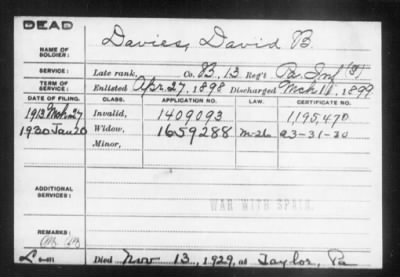 DEAD
NAME OF SOLDIER: Davies, David B.
SERVICE: Late rank, Co. B, 13 Reg't Pa. Inf
TERM OF SERVICE: Enlisted Apr. 27, 1898 Discharged Mch 11, 1899
DATE OF FILING. CLASS. APPLICATION NO. LAW. CERTIFICATE NO.
1913 Mch 27 Invalid, 1409093 1195,470
1930 Jan 20 Widow, 1659288 M-26 a3-31-30
Minor,
ADDITIONAL SERVICES:
WAR WITH SPAIN
REMARKS:
L 6-411 Died Nov 13, 1929, at Taylor, Pa